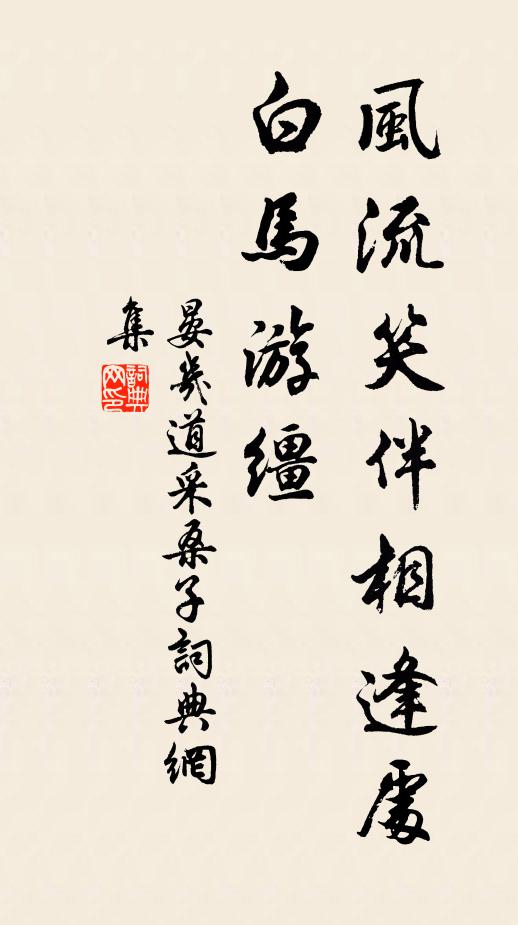 風流笑伴相逢處
白馬游繮
晏幾道采桑子詞典網
集
詞典
网印